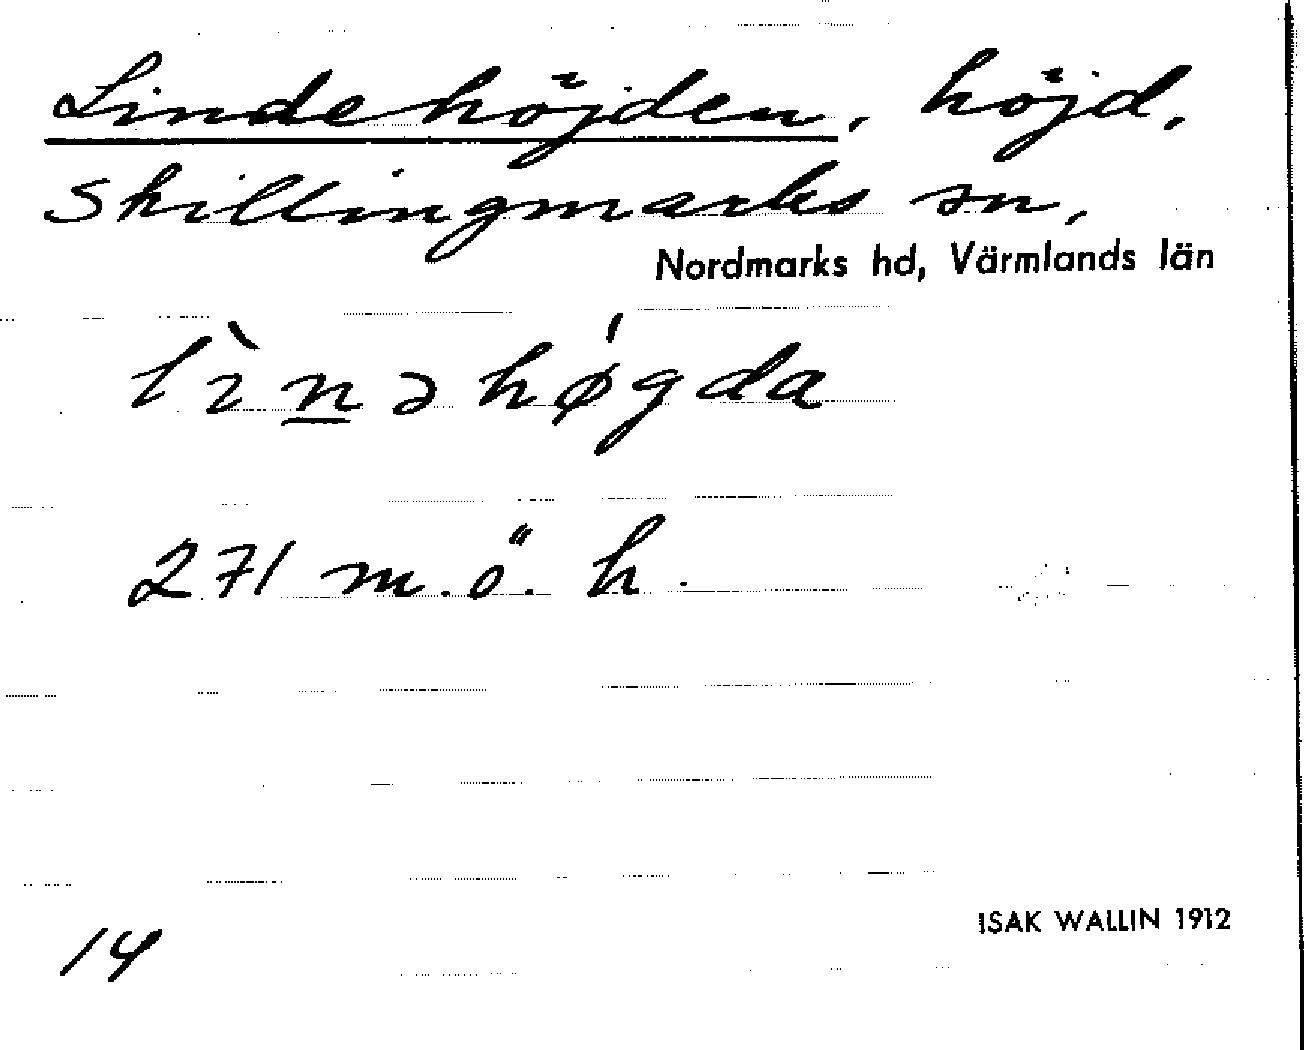 Lindehöjden, höjd,
Skillingmarks sn,
Nordmarks hd, Värmlands län
lìnəhǿgda
271 m.ö.h.
14
ISAK WALLIN 1912